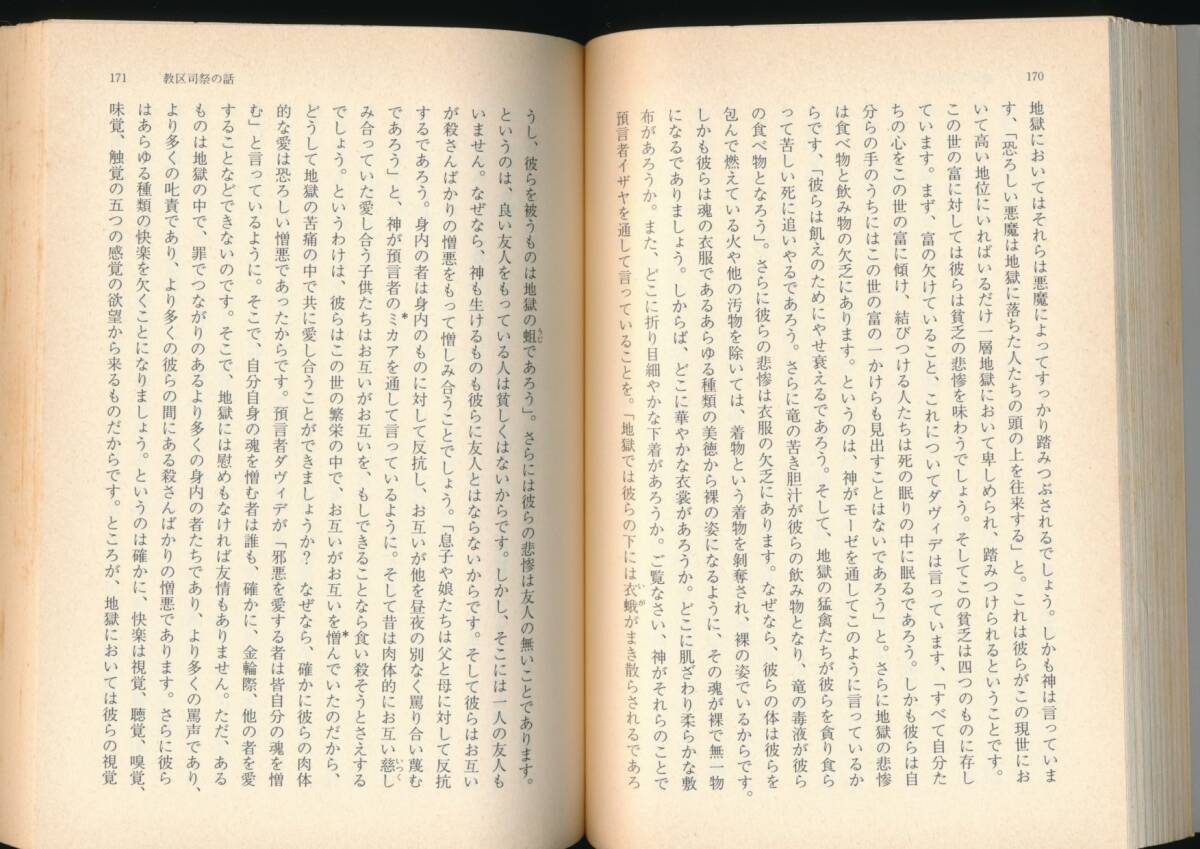 170
地獄においてはそれらは悪魔によってすっかり踏みつぶされるでしょう。しかも神は言っていま
す、「恐ろしい悪魔は地獄に落ちた人たちの頭の上を往来する」と。これは彼らがこの現世にお
いて高い地位にいればいるだけ一層地獄において卑しめられ、踏みつけられるということです。
この世の富に対しては彼らは貧乏の悲惨を味わうでしょう。そしてこの貧乏は四つのものに存し
ています。まず、富の欠けていること、これについてダヴィデは言っています、「すべて自分た
ちの心をこの世の富に傾け、結びつける人たちは死の眠りの中に眠るであろう。しかも彼らは自
分らの手のうちにはこの世の富の一かけらも見出すことはないであろう」と。さらに地獄の悲惨
は食べ物と飲み物の欠乏にあります。というのは、神がモーゼを通してこのように言っているか
らです、「彼らは飢えのためにやせ衰えるであろう。そして、地獄の猛禽たちが彼らを貪り食ら
って苦しい死に追いやるであろう。さらに竜の苦き胆汁が彼らの飲み物となり、竜の毒液が彼ら
の食べ物となろう」。さらに彼らの悲惨は衣服の欠乏にあります。なぜなら、彼らの体は彼らを
包んで燃えている火や他の汚物を除いては、着物という着物を剝奪され、裸の姿でいるからです。
しかも彼らは魂の衣服であるあらゆる種類の美徳から裸の姿になるように、その魂が裸で無一物
になるでありましょう。しからば、どこに華やかな衣裳があろうか。どこに肌ざわり柔らかな敷
布があろうか。また、どこに折り目細やかな下着があろうか。ご覧なさい、神がそれらのことで
預言者イザヤを通して言っていることを。「地獄では彼らの下には衣蛾いががまき散らされるであろ
171 教区司祭の話
うし、彼らを被うものは地獄の蛆うじであろう」。さらには彼らの悲惨は友人の無いことであります。
というのは、良い友人をもっている人は貧しくはないからです。しかし、そこには一人の友人も
いません。なぜなら、神も生けるものも彼らに友人とはならないからです。そして彼らはお互い
が殺さんばかりの憎悪をもって憎しみ合うことでしょう。「息子や娘たちは父と母に対して反抗
するであろう。身内の者は身内のものに対して反抗し、お互いが他を昼夜の別なく罵り合い蔑む
であろう」と、神が預言者の*ミカアを通して言っているように。そして昔は肉体的にお互い慈いつくし
み合っていた愛し合う子供たちはお互いがお互いを、もしできることなら食い殺そうとさえする
でしょう。というわけは、彼らはこの世の繁栄の中で、お互いがお互いを憎*んでいたのだから、
どうして地獄の苦痛の中で共に愛し合うことができましょうか? なぜなら、確かに彼らの肉体
的な愛は恐ろしい憎悪であったからです。預言者ダヴィデが「邪悪を愛する者は皆自分の魂を憎
む」と言っているように。そこで、自分自身の魂を憎む者は誰も、確かに、金輪際、他の者を愛
することなどできないのです。そこで、地獄には慰めもなければ友情もありません。ただ、ある
ものは地獄の中で、罪でつながりのあるより多くの身内の者たちであり、より多くの罵声であり、
より多くの叱責であり、より多くの彼らの間にある殺さんばかりの憎悪であります。さらに彼ら
はあらゆる種類の快楽を欠くことになりましょう。というのは確かに、快楽は視覚、聴覚、嗅覚、
味覚、触覚の五つの感覚の欲望から来るものだからです。ところが、地獄においては彼らの視覚